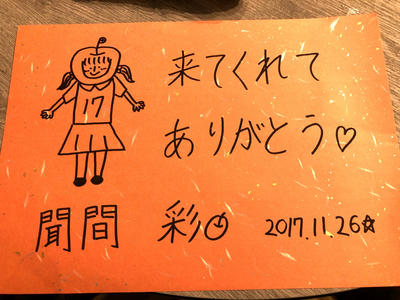 来てくれて
17
ありがとう♡
聞間 彩 2017.11.26☆